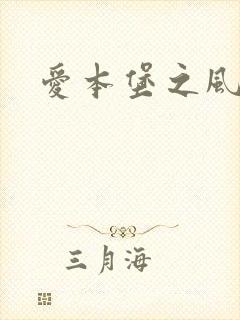 愛本堡之風
三月海